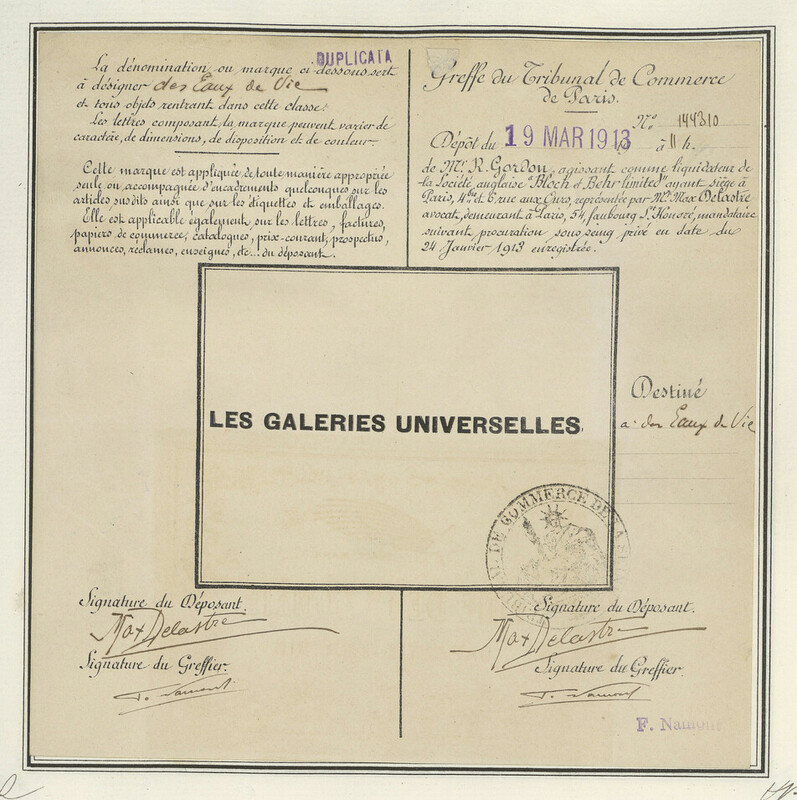 DUPLICATA
La dénomination ou marque ci-dessous sert
à désigner des Eaux de Vie
et tous objets rentrant dans cette classe.
Les lettres composant la marque peuvent varier de
caractère, de dimensions, de disposition et de couleur.
Cette marque est appliquée de toute manière appropriée
seule ou accompagnée d'encadrements quelconques sur les
articles susdits ainsi que sur les étiquettes et emballages.
Elle est applicable également sur les lettres, factures,
papiers de commerce, catalogues, prix-courant, prospectus,
annonces, réclames, enseignes, etc... du déposant.
Greffe du Tribunal de Commerce
de Paris.
No 144310
Dépôt du 19 MAR 1913 à 11 h.
de Mr. R. Gordon, agissant comme liquidateur de
la Société anglaise "Bloch et Behr limited" ayant siège à
Paris, 4bis et 6 rue aux Ours, représentée par Mr. Max Delastre
avocat, demeurant à Paris, 54, faubourg St. Honoré, mandataire
suivant procuration sous seing privé en date du
24 Janvier 1913 enregistrée.
LES GALERIES UNIVERSELLES
Destiné
à des Eaux de Vie
DE COMMERCE DE LA SEINE
Signature du Déposant.
Max Delastre
Signature du Greffier.
F. Namont
Signature du Déposant.
Max Delastre
Signature du Greffier.
F. Namont